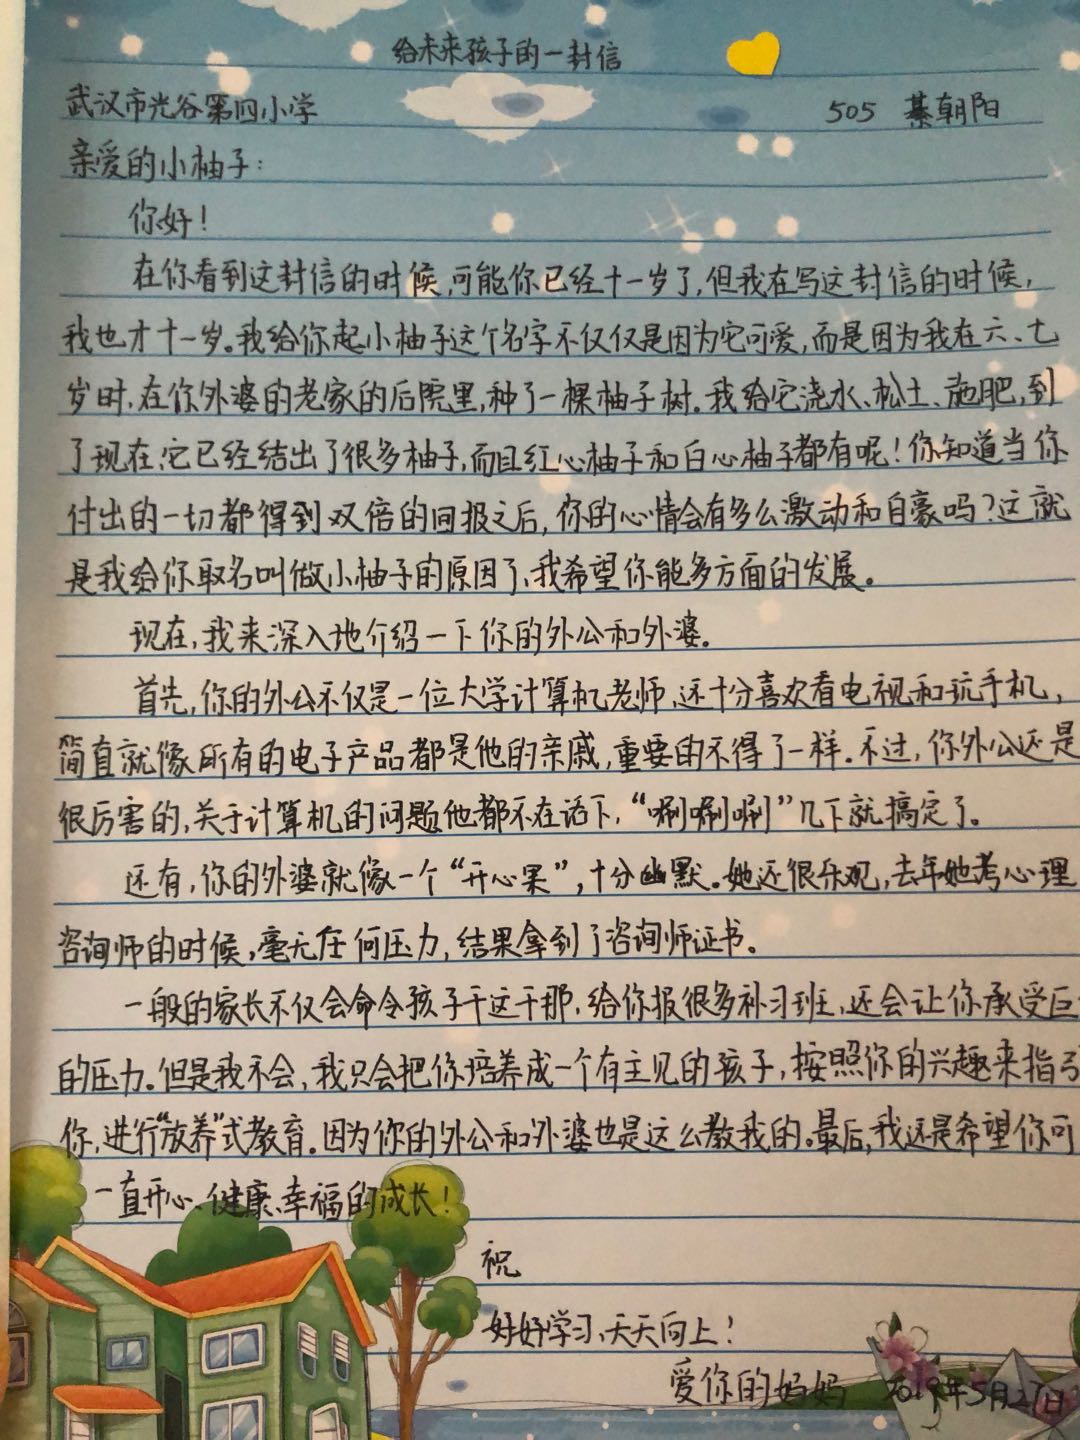 给未来孩子的一封信
武汉市光谷第四小学 505 綦朝阳
亲爱的小柚子:
你好!
在你看到这封信的时候,可能你已经十一岁了,但我在写这封信的时候,
我也才十一岁。我给你起小柚子这个名字不仅仅是因为它可爱,而是因为我在六、七
岁时,在你外婆的老家的后院里,种了一棵柚子树。我给它浇水、松土、施肥,到
了现在,它已经结出了很多柚子,而且红心柚子和白心柚子都有呢!你知道当你
付出的一切都得到双倍的回报之后,你的心情会有多么激动和自豪吗?这就
是我给你取名叫做小柚子的原因了,我希望你能多方面的发展。
现在,我来深入地介绍一下你的外公和外婆。
首先,你的外公不仅是一位大学计算机老师,还十分喜欢看电视和玩手机,
简直就像所有的电子产品都是他的亲戚,重要的不得了一样。不过,你外公还是
很厉害的,关于计算机的问题他都不在话下,“唰唰唰”几下就搞定了。
还有,你的外婆就像一个“开心果”,十分幽默。她还很乐观,去年她考心理
咨询师的时候,毫无任何压力,结果拿到了咨询师证书。
一般的家长不仅会命令孩子干这干那,给你报很多补习班,还会让你承受巨
的压力。但是我不会,我只会把你培养成一个有主见的孩子,按照你的兴趣来指引
你,进行“放养”式教育。因为你的外公和外婆也是这么教我的。最后,我还是希望你可
一直开心、健康、幸福的成长!
祝
好好学习、天天向上!
爱你的妈妈 2019年5月27日